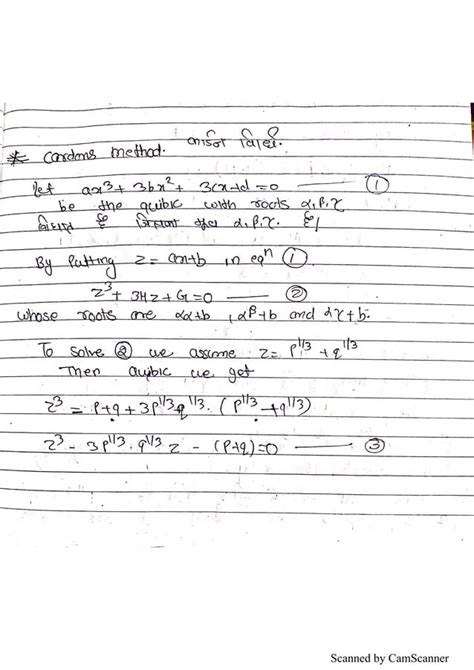 * Cardons method. कार्डन विधि.
Let ax³ + 3bx² + 3cx + d = 0 —— ①
be the quibic with roots α, β, γ
है जिसका मूल α, β, γ. है|
By Putting z = ax+b in eqⁿ ①.
z³ + 3Hz + G = 0 —— ②
whose roots are aα+b, aβ+b and aγ+b.
To solve ② we assume z = p^1/3 + q^1/3
Then quibic we get
z³ = p+q + 3p^1/3 q^1/3. (p^1/3 + q^1/3)
z³ - 3p^1/3. q^1/3 z - (p+q) = 0 —— ③
Scanned by CamScanner